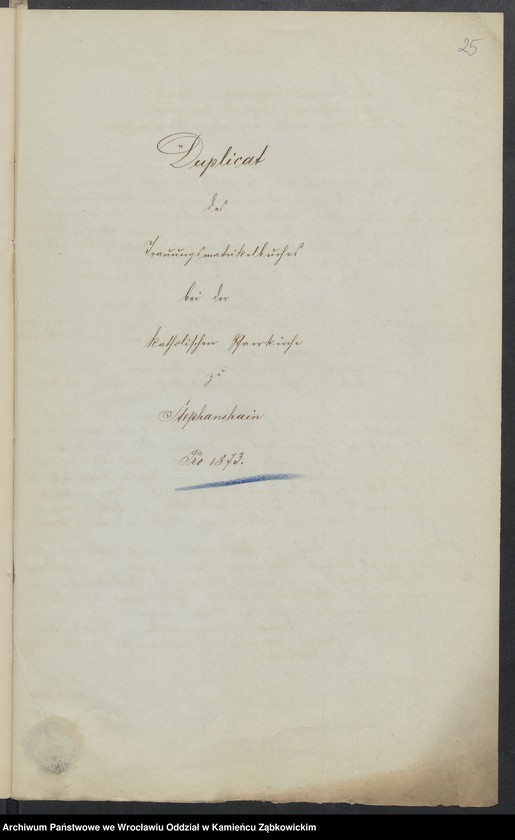 25
Duplicat
des
Trauungsmatrikelbuches
bei der
katholischen Pfarrkirche
zu
Stephanshain
Pro 1873.
Archiwum Państwowe we Wrocławiu Oddział w Kamieńcu Ząbkowickim